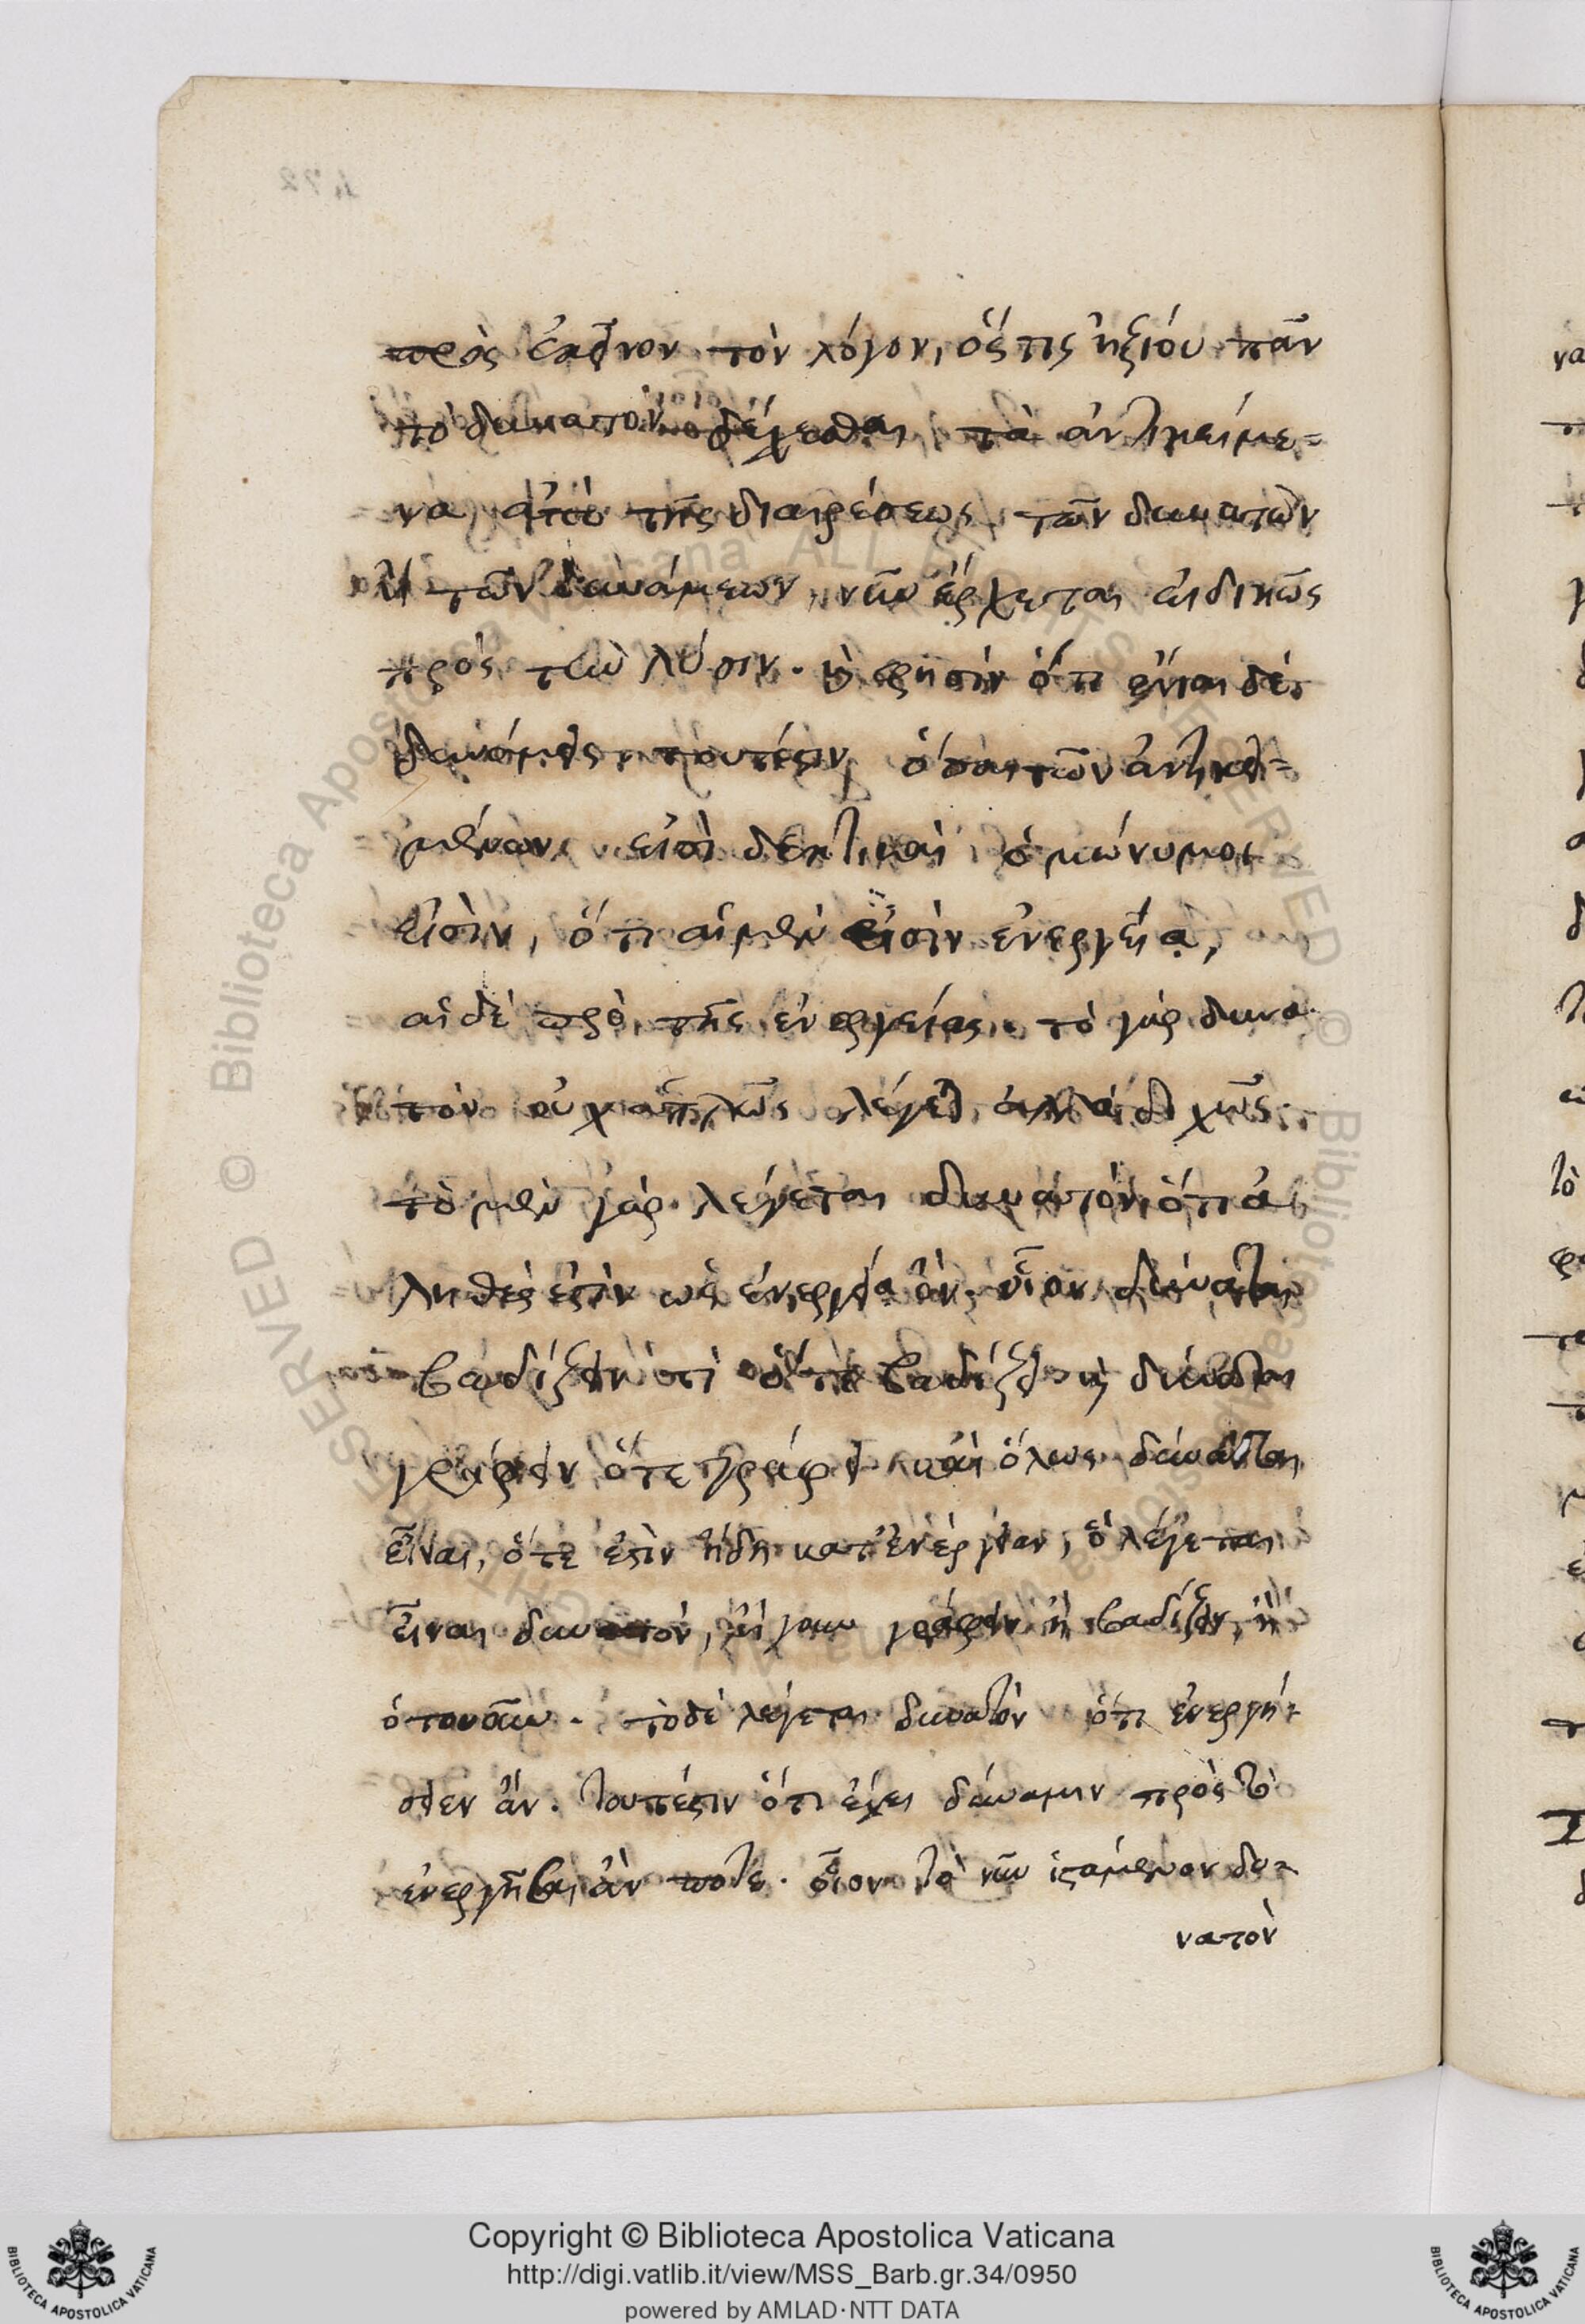 πρὸς ἐκεῖνον τὸν λόγον, ὅςτις ἠξίου πᾶν
τὸ δυνατὸν δέχεσθαι τὰ ἀντικείμε=
να, ἀπὸ τῆς διαιρέσεως τῶν δυνατῶν
ἢ τῶν δυνάμεων, νῦν ἔρχεται εἰδικῶς
πρὸς τὴν λύσιν. καὶ φησὶν ὅτι ἔνιαι δὲ
δυνάμεις, τουτέστιν ὅσαι τῶν ἀντικει=
μένων εἰσὶ δεκτικαὶ ὁμώνυμοι
εἰσὶν, ὅτι αἱ μὲν εἰσὶν ἐνεργείᾳ,
αἱ δὲ πρὸ τῆς ἐνεργείας. τὸ γὰρ δυνα
τὸν οὐχ ἁπλῶς λέγει ἀλλὰ διχῶς.
τὸ μὲν γὰρ λέγεται δυνατὸν ὅτι ἀ
ληθές ἐστὶν ὡς ἐνεργείᾳ ὄν. οἷον δύναται
βαδίζειν ὅτι ὅτε βαδίζει καὶ δύναται
γράφειν ὅτε γράφει καὶ ὅλως δύναται
εἶναι, ὅτε ἐστὶν ἤδη κατ' ἐνέργειαν, ὃ λέγεται
εἶναι δυνατόν, γράφειν ἢ βαδίζειν, ἢ
ὁτονοῦν. τὸ δὲ λέγεται δυνατὸν ὅτι ἐνεργή=
σειεν ἄν. τουτέστιν ὅτι ἔχει δύναμιν πρὸς τὸ
ἐνεργῆσαι ἄν ποτε. οἷον τὸ νῦν ἱστάμενον δυ=
νατὸν
Copyright © Biblioteca Apostolica Vaticana
http://digi.vatlib.it/view/MSS_Barb.gr.34/0950
powered by AMLAD·NTT DATA